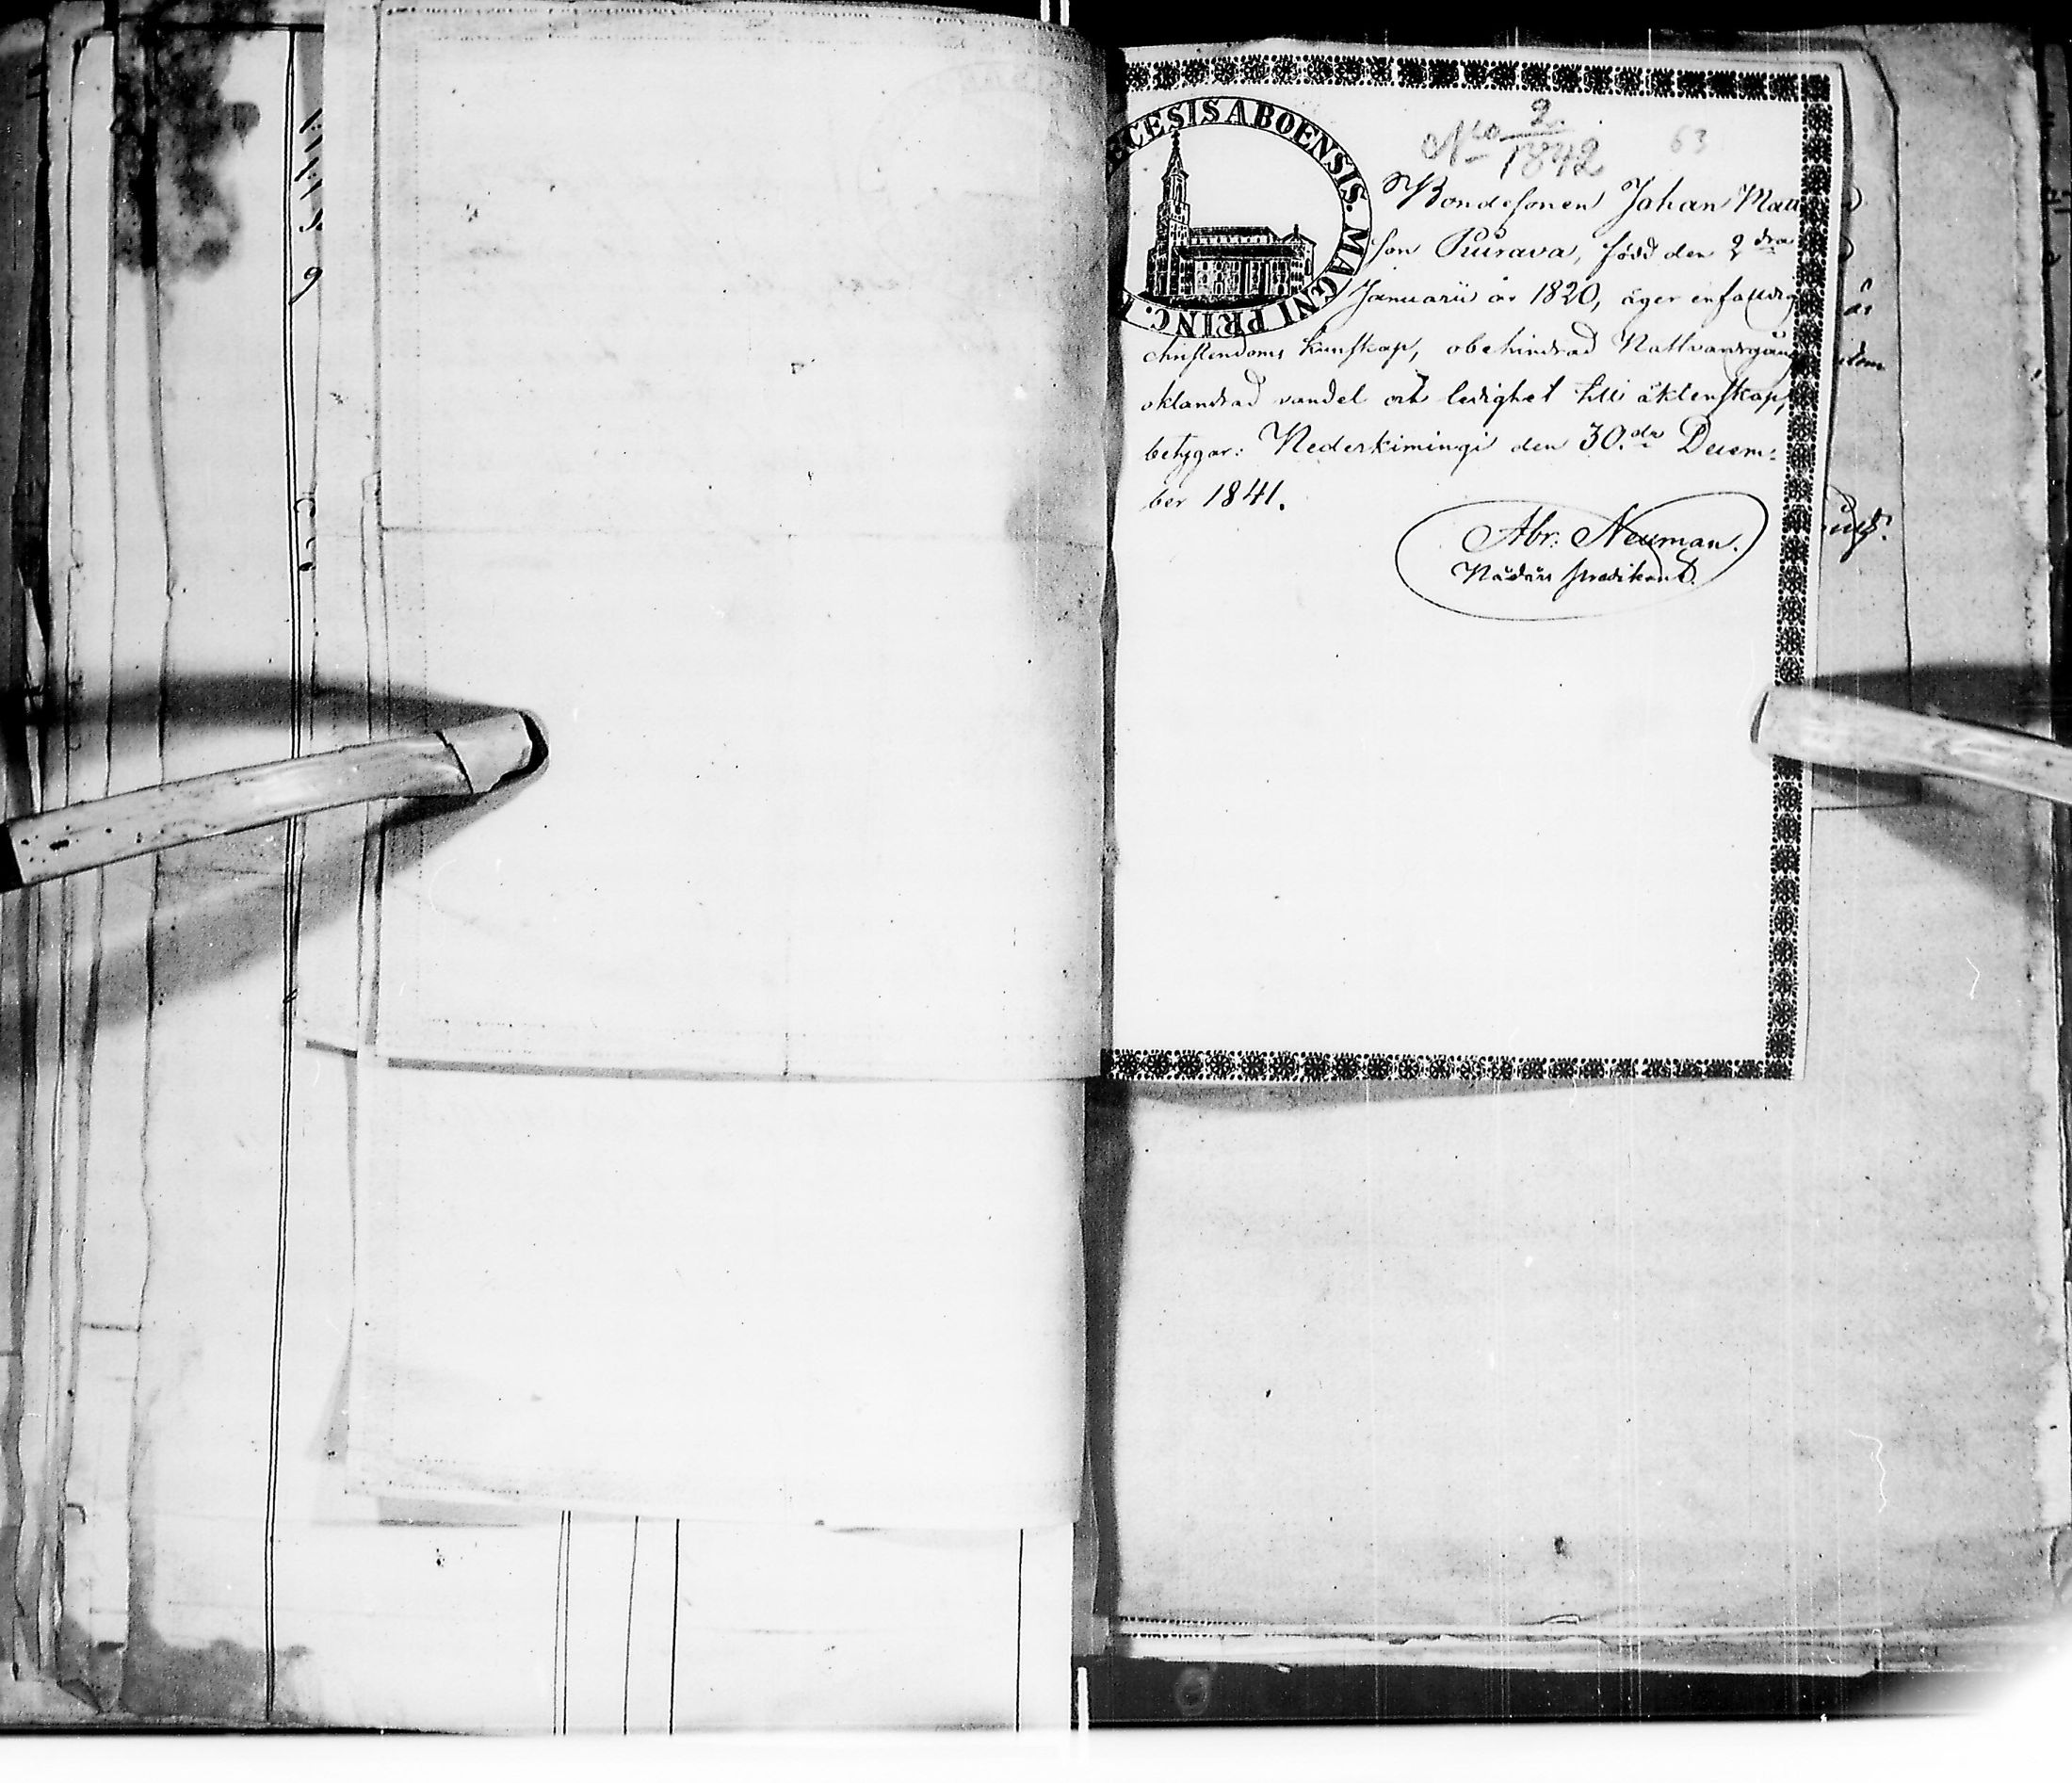 DIOECESIS ABOENSIS. MAGNI PRINC. F
N:o 2. 63
1842
Bondesonen Johan Matts
son Puurava, född den 2dra
Januarii år 1820, äger enfalldig
christendoms kunskap, obehindrad Nattvardsgång
oklandrad vandel och ledighet till äktenskap,
betygar: Nederkimingi den 30.de Decem-
ber 1841.
Abr: Neuman.
Nådårs predikant.